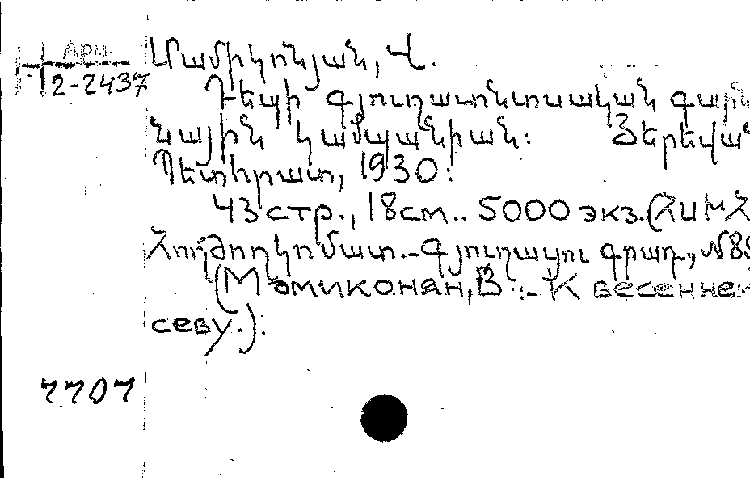 Арм.
2-2437
Մամիկոնյան, Վ.
Դեպի գյուղատնտեսական գար
նային կամպանիան: Յերեվան
Պետհրատ, 1930:
43 стр., 18 см.. 5000 экз. (ՀՍԽՀ
Հողժողկոմատ.-Գյուղացու գրադ., №89
(Мамиконян, В.:- К весенней
севу.):
7707